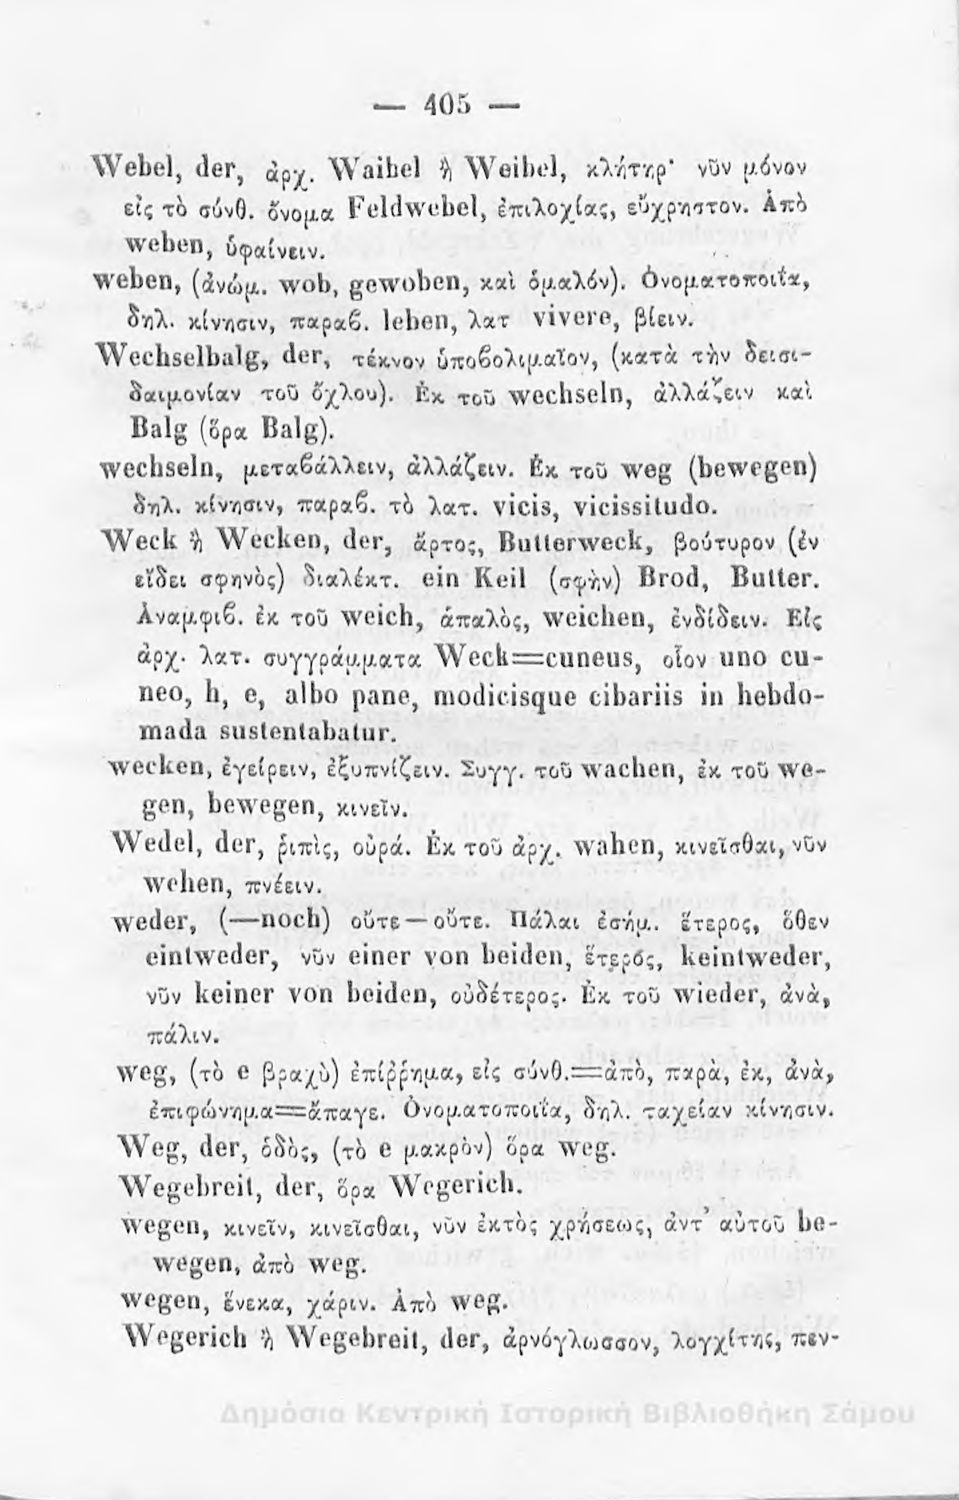 — 405 —
Webel, der, ἀρχ. Waibel ἢ Weibel, κλήτηρ· νῦν μόνον
εἰς τὸ σύνθ. ὄνομα Feldwebel, ἐπιλοχίας, εὔχρηστον. Ἀπὸ
weben, ὑφαίνειν.
weben, (ἀνώμ. wob, gewoben, καὶ ὁμαλόν). Ὀνοματοποιΐα,
δηλ. κίνησιν, παραβ. leben, λατ vivere, βίειν.
Wechselbalg, der, τέκνον ὑποβολιμαῖον, (κατὰ τὴν δεισι-
δαιμονίαν τοῦ ὄχλου). Ἐκ τοῦ wechseln, ἀλλάζειν καὶ
Balg (ὅρα Balg).
wechseln, μεταβάλλειν, ἀλλάζειν. Ἐκ τοῦ weg (bewegen)
δηλ. κίνησιν, παραβ. τὸ λατ. vicis, vicissitudo.
Weck ἢ Wecken, der, ἄρτος, Butterweck, βούτυρον (ἐν
εἴδει σφηνὸς) διαλέκτ. ein Keil (σφὴν) Brod, Butter.
Ἀναμφιβ. ἐκ τοῦ weich, ἁπαλὸς, weichen, ἐνδίδειν. Εἰς
ἀρχ. λατ. συγγράμματα Weck=cuneus, οἷον uno cu-
neo, h, e, albo pane, modicisque cibariis in hebdo-
mada sustentabatur.
wecken, ἐγείρειν, ἐξυπνίζειν. Συγγ. τοῦ wachen, ἐκ τοῦ we-
gen, bewegen, κινεῖν.
Wedel, der, ῥιπὶς, οὐρά. Ἐκ τοῦ ἀρχ. wahen, κινεῖσθαι, νῦν
wehen, πνέειν.
weder, (—noch) οὔτε—οὔτε. Πάλαι ἐσήμ. ἕτερος, ὅθεν
eintweder, νῦν einer von beiden, ἕτερός, keintweder,
νῦν keiner von beiden, οὐδέτερος. Ἐκ τοῦ wieder, ἀνὰ,
πάλιν.
weg, (τὸ e βραχὺ) ἐπίῤῥημα, εἰς σύνθ.=ἀπὸ, παρὰ, ἐκ, ἀνὰ,
ἐπιφώνημα=ἄπαγε. Ὀνοματοποιΐα, δηλ. ταχείαν κίνησιν.
Weg, der, ὁδὸς, (τὸ e μακρὸν) ὅρα weg.
Wegebreit, der, ὅρα Wegerich.
wegen, κινεῖν, κινεῖσθαι, νῦν ἐκτὸς χρήσεως, ἀντ' αὐτοῦ be-
wegen, ἀπὸ weg.
wegen, ἕνεκα, χάριν. Ἀπὸ weg.
Wegerich ἢ Wegebreit, der, ἀρνόγλωσσον, λογχίτης, πεν-
Δημόσια Κεντρική Ιστορική Βιβλιοθήκη Σάμου